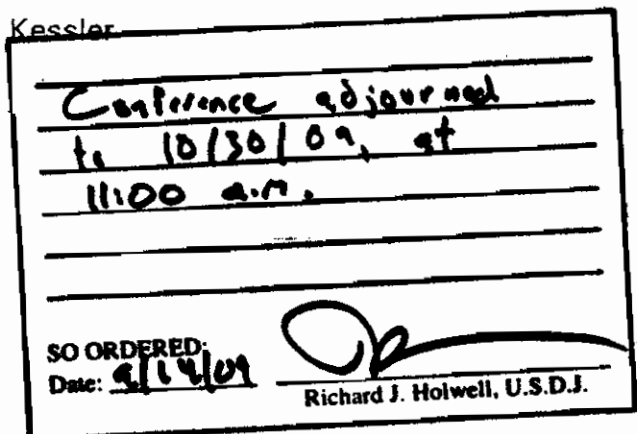 Kessler
Conference adjourned
to 10/30/09, at
11:00 a.m.
SO ORDERED:
Date: 9/14/09
Richard J. Holwell, U.S.D.J.